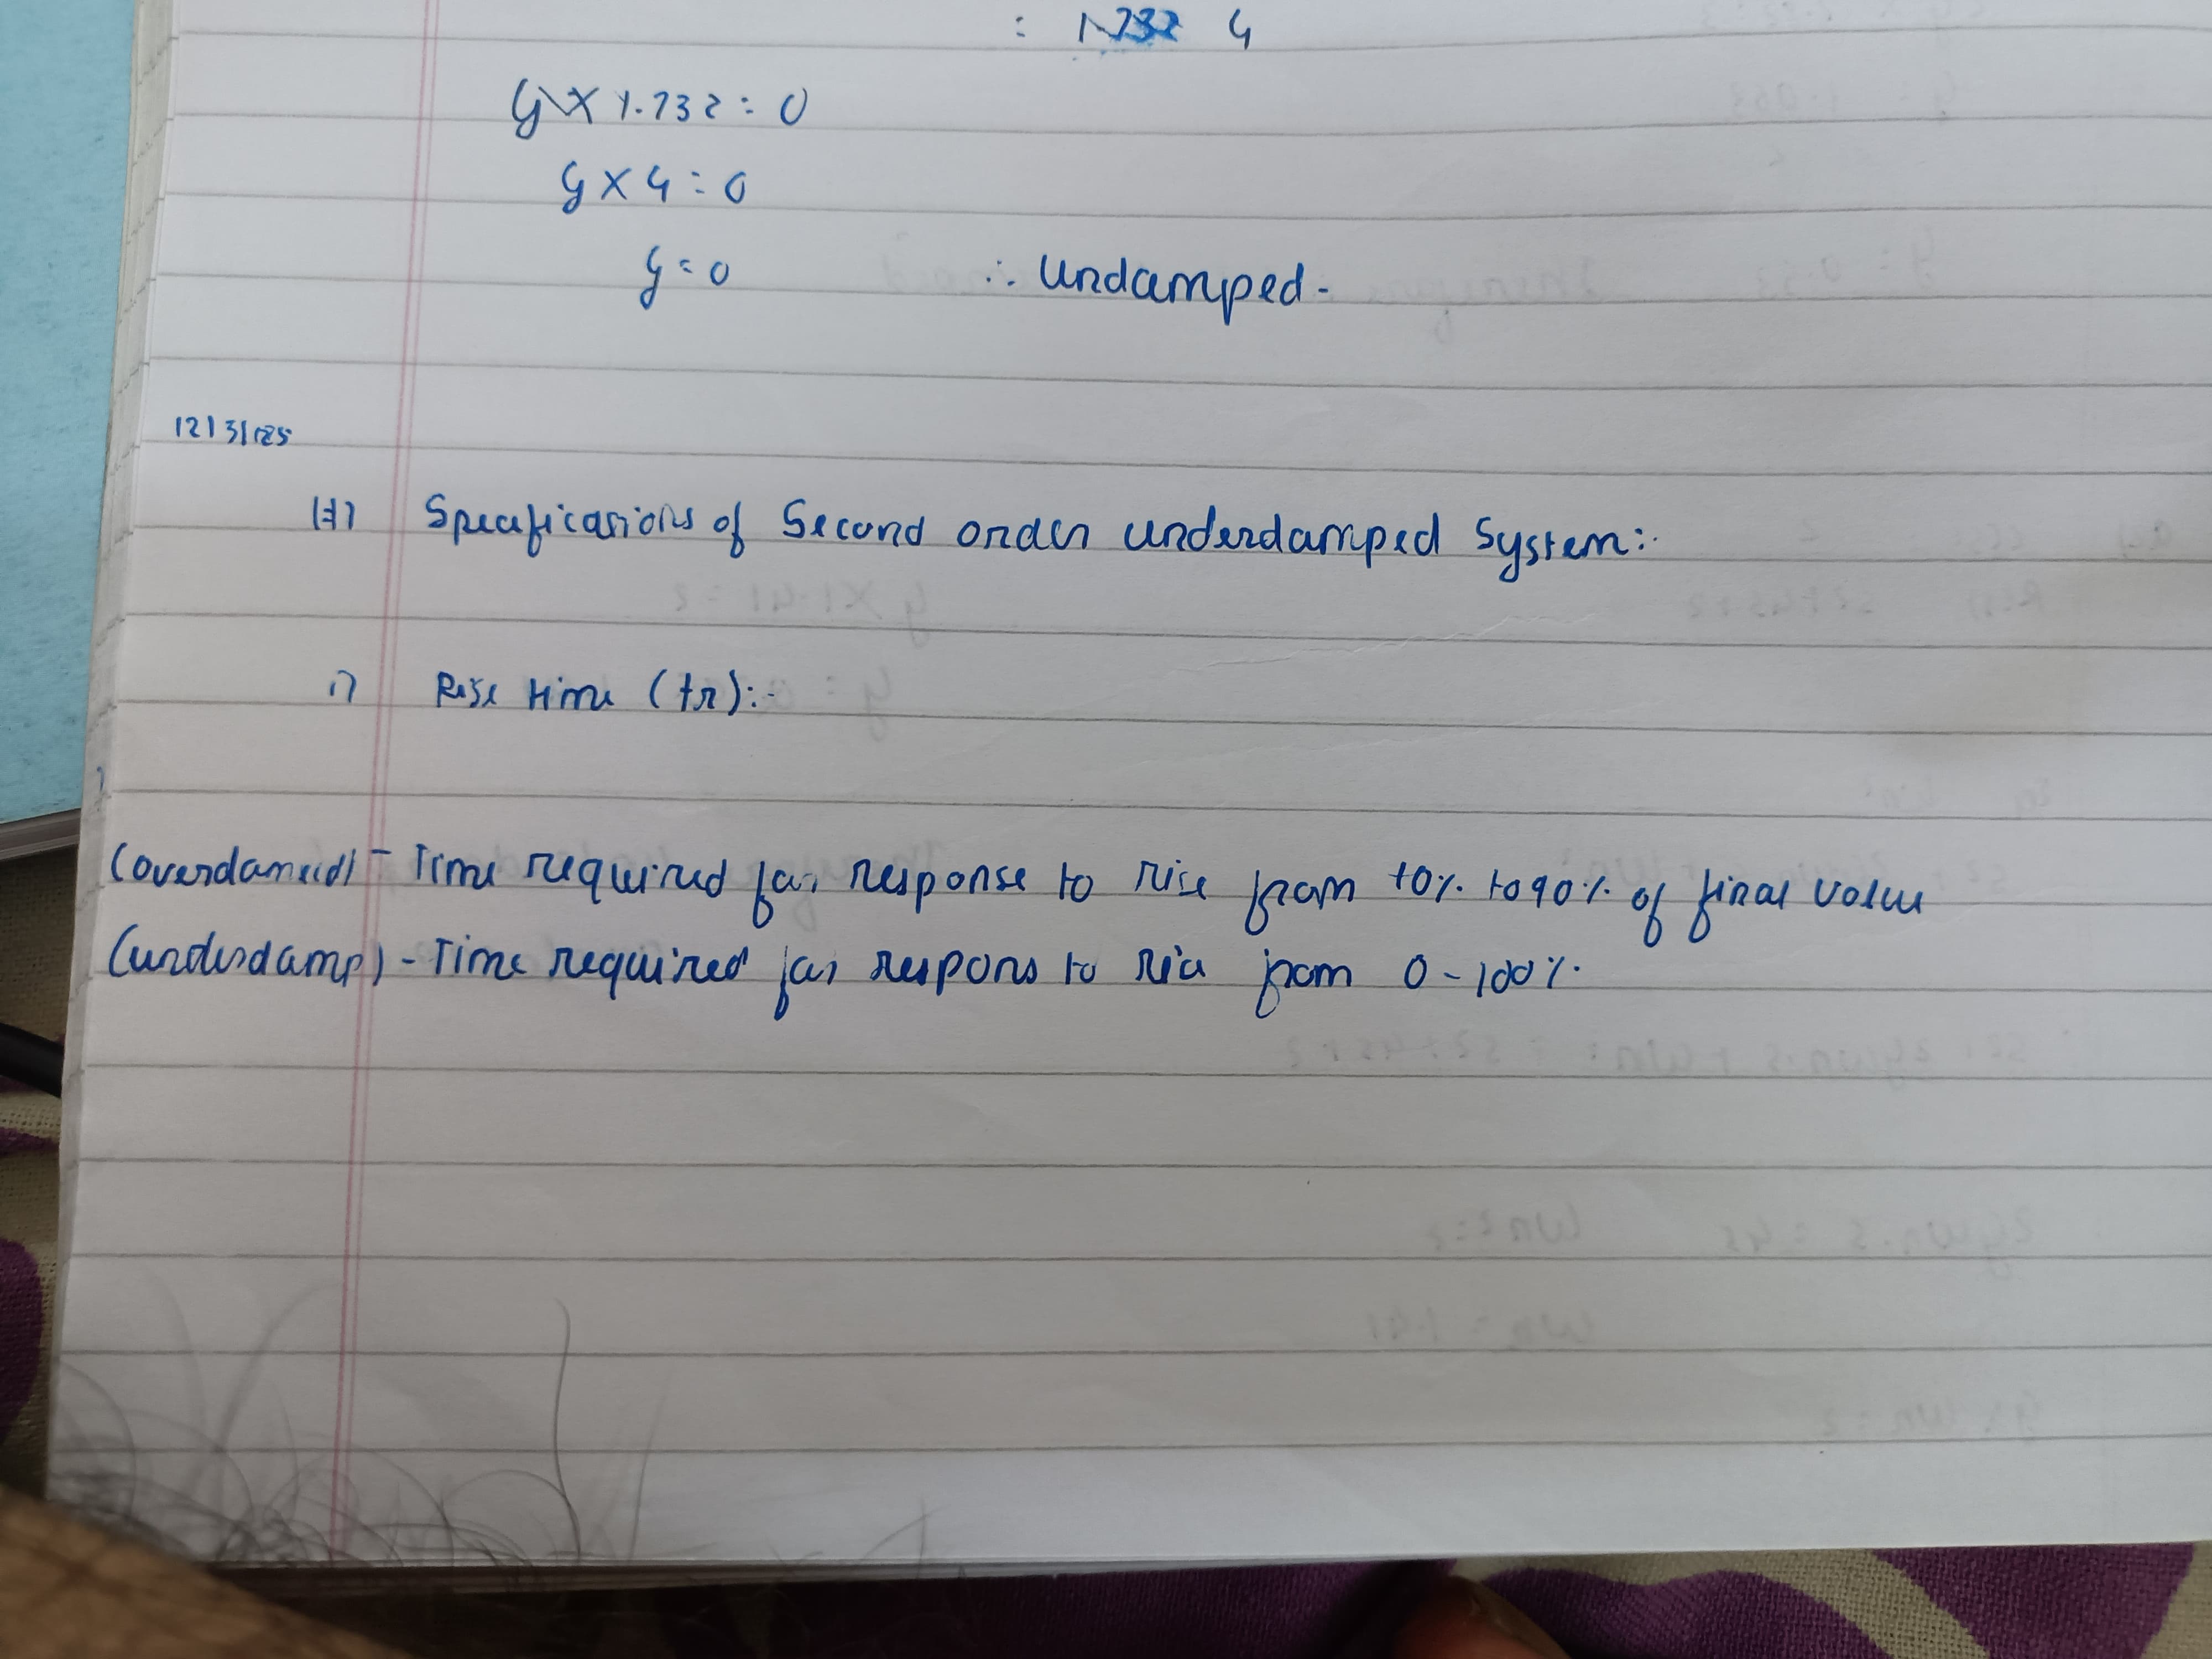 : 1.732 4
y x 1.732 = 0
y x 4 = 0
y = 0 ∴ Undamped -
12/3/25
#) Specifications of Second order underdamped System:-
i) Rise time (tr):-
(overdamed) - Time required for response to rise from 10% to 90% of final value
(underdamp) - Time required for respons to rise from 0-100%.